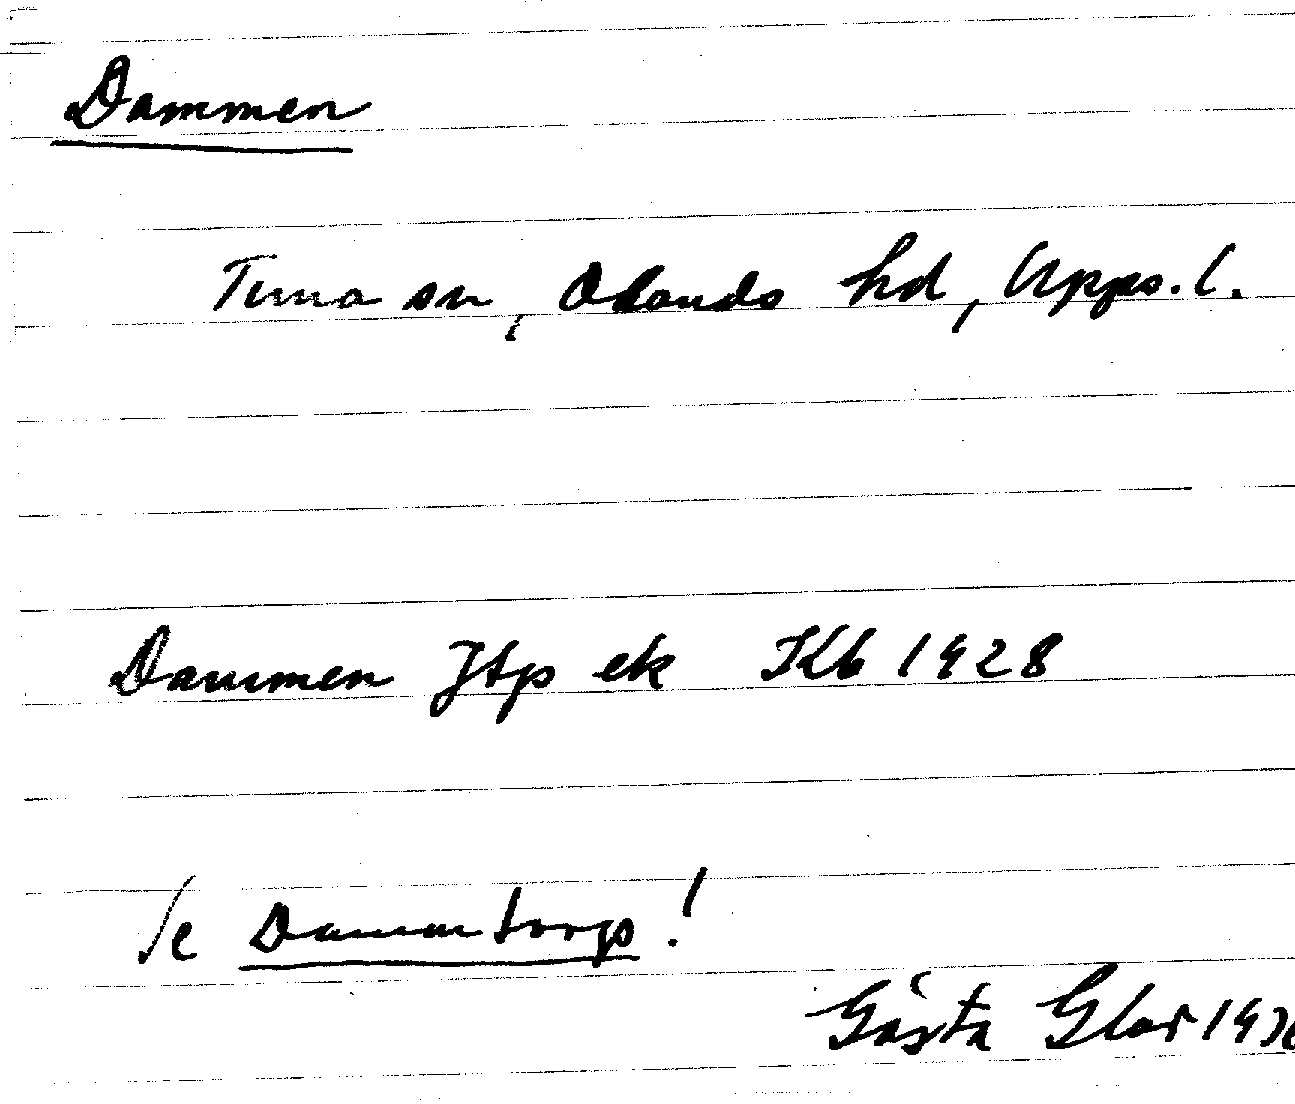 Dammen
Tuna sn, Olands hd, Upps. l.
Dammen Jtp ek Kb 1928
Se Dammtorp!
Gösta